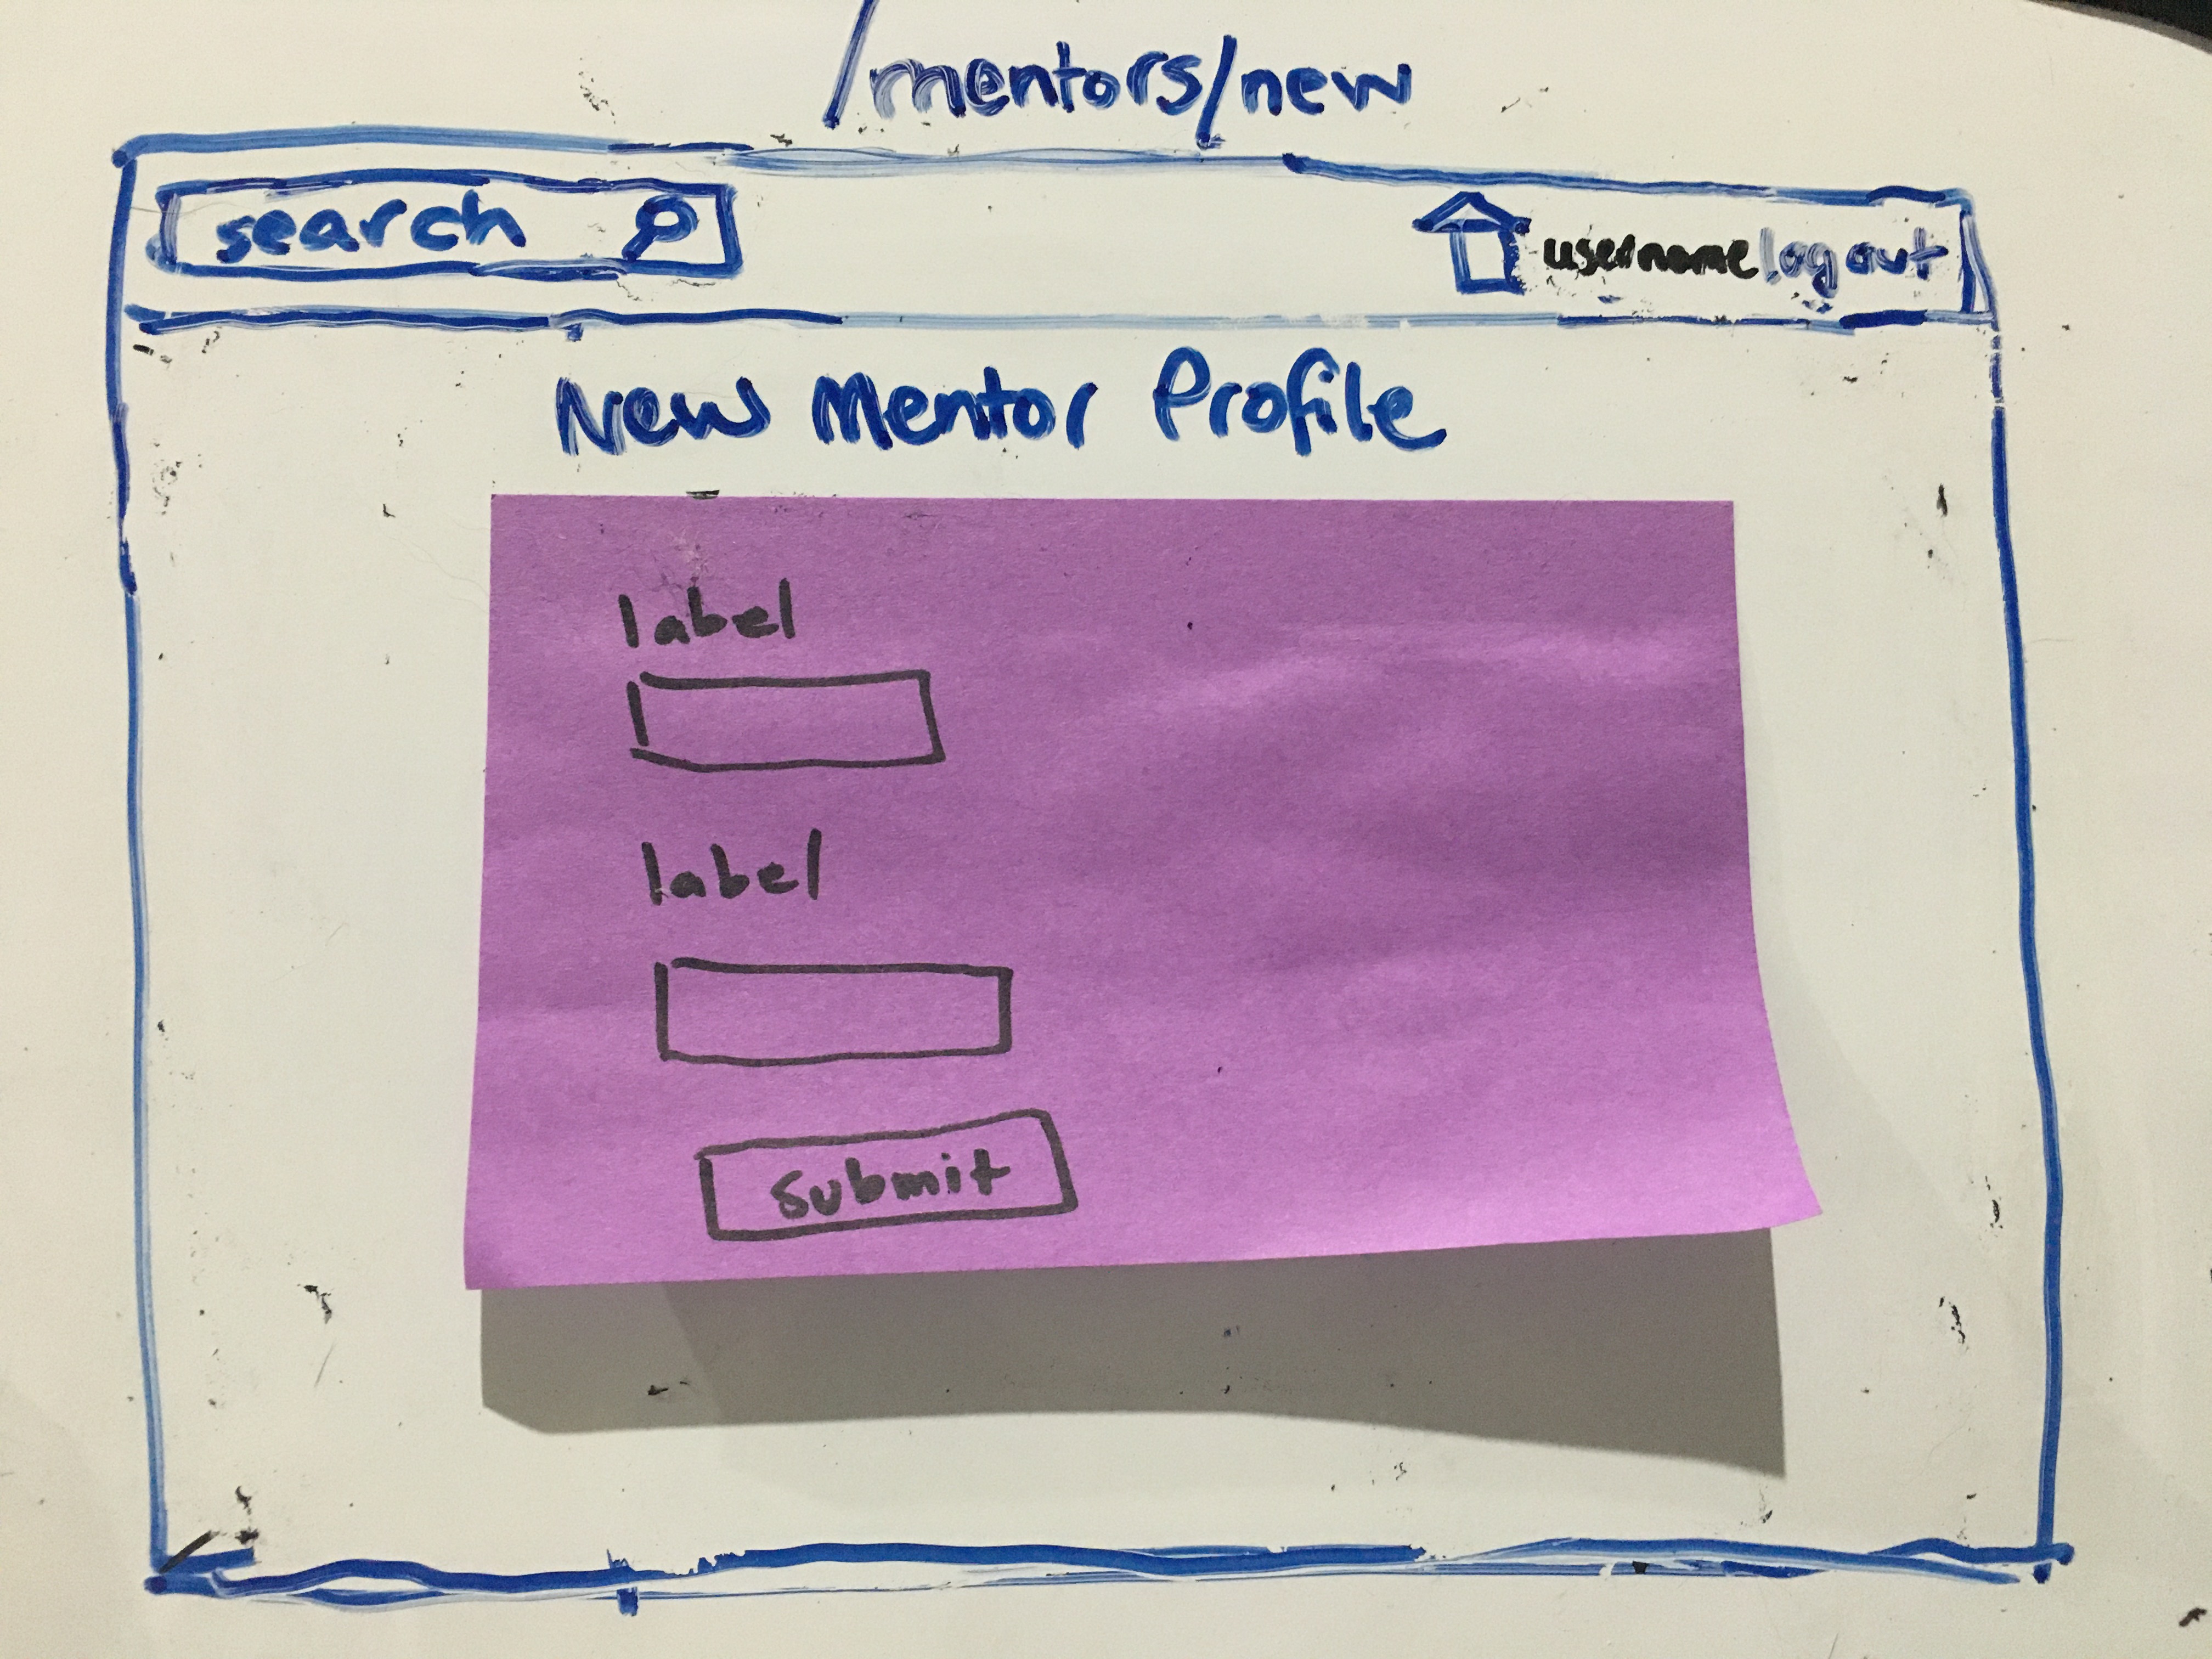 /mentors/new
search username logout
New Mentor Profile
label
label
submit